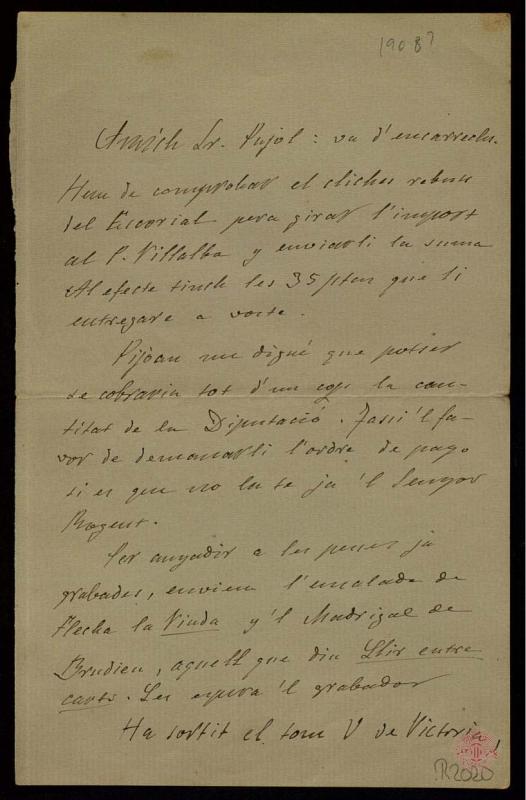 1908?
Amich Sr. Pujol: va d'encarrechs.
Hem de comprobar el cliches rebuts
del Escorial pera girar l'import
al P. Villalba y enviarli la suma
Al efecte tinch les 35 ptes que li
entregare a voste.
Pijoan me digué que potser
se cobraria tot d'un cop la can-
titat de la Diputació. Fassi'l fa-
vor de demanarli l'ordre de pago
si es que no la te ja 'l Senyor
Rogent.
Per anyadir a les pesses ja
grabades, enviem l'ensalada de
Flecha la Viuda y'l Madrigal de
Brudieu, aquell que diu Llir entre
carts. Les espera 'l grabador
Ha sortit el tom V de Victoria!
R2020